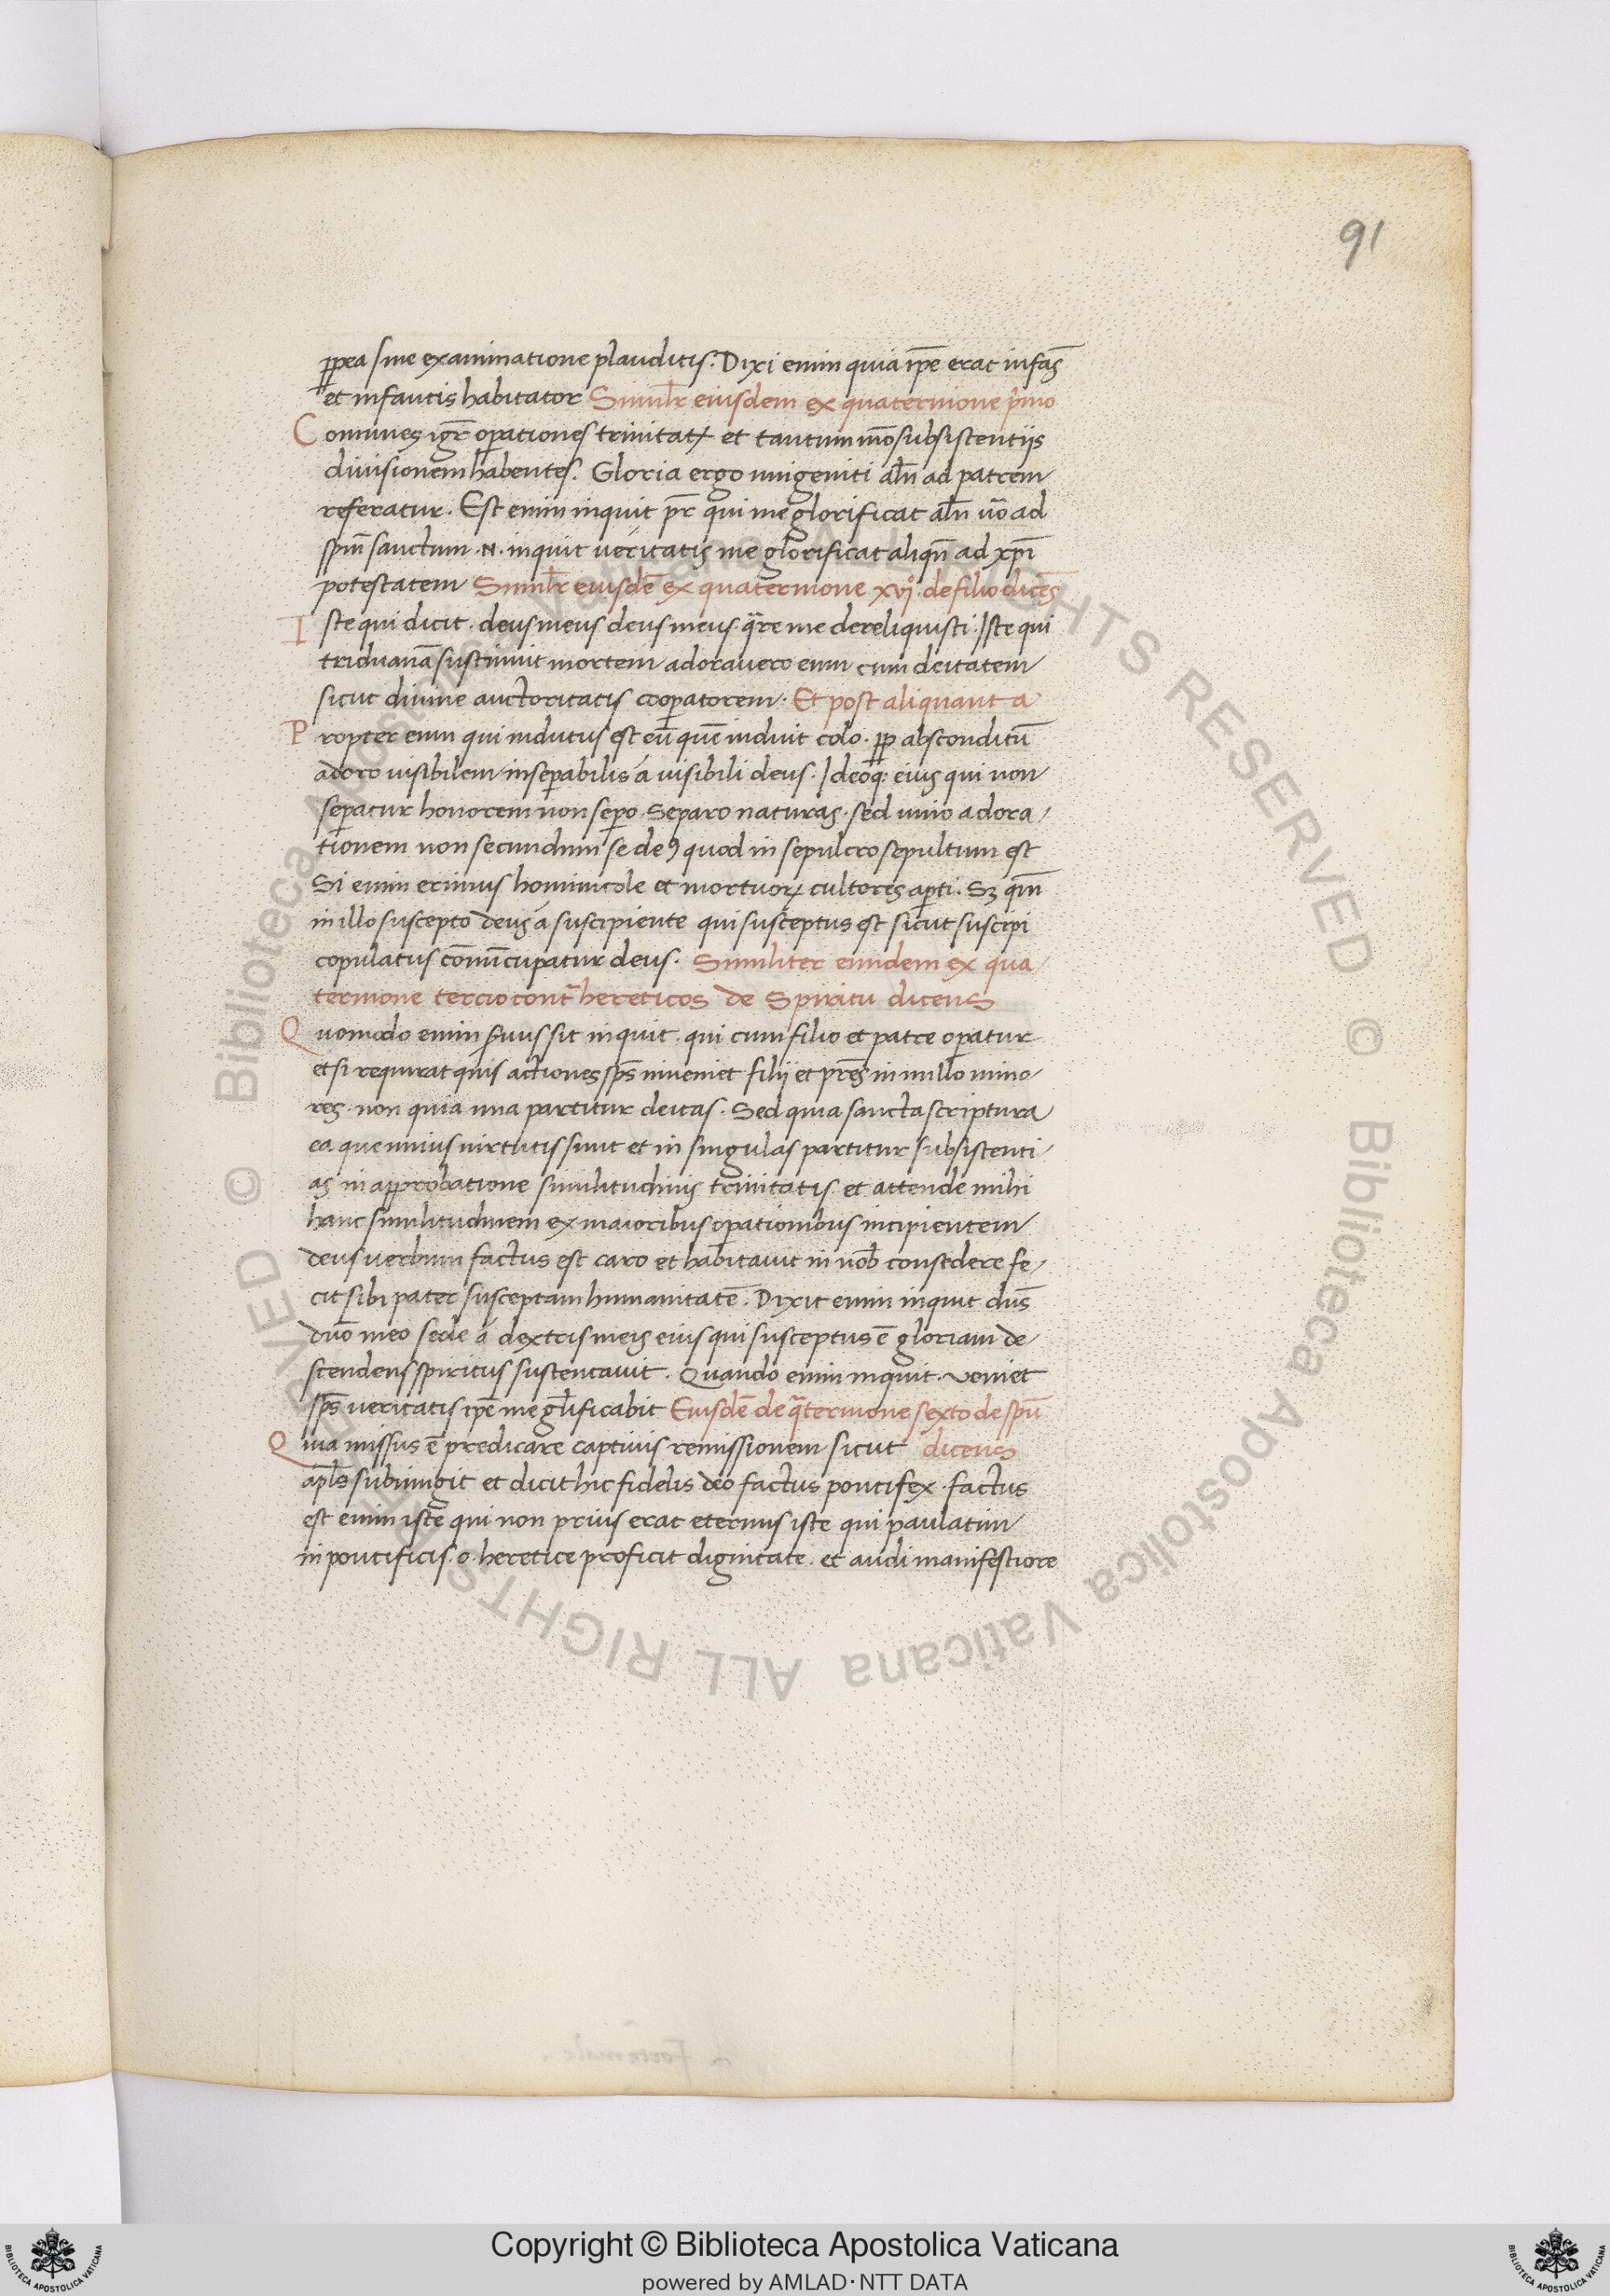 91
ꝓpea sine examinatione plauditis. Dixi enim quia ip̄e erat infās
et infantis habitator Similr̄ eiusdem ex quaternione p̄mo
Comunes igr̄ oꝑationes trinitatꝭ et tantum mō subsistentijs
diuisionem habentes. Gloria ergo unigeniti aliꝗn̄ ad patrem
referatur. Est enim inquit pr̄ qui me glorificat aliꝗn̄ uō ad
spm̄ sanctum .N. inquit ueritatis me glorificat aliqn̄ ad xpī
potestatem Similr̄ eiusdē ex quaternione xvjº. de filio dicēs
Iste qui dicit. deus meus deus meus. q̄re me dereliquisti. Iste qui
triduanā sustinuit mortem adoro uero eum cum deitatem
sicut diuine auctoritatis cooꝑatorem. Et post aliquanta
Propter eum qui indutus est eū quē induit colo. ꝓp absconditū
adoro uisibilem inseꝑabilis á uisibili deus. Ideoq: eius qui non
seꝑatur honorem non seꝑo. Separo naturas. sed unio adora
tionem non secundum se deꝰ quod in sepulcro sepultum est
Si enim erimus hominicole et mortuoꝝ cultores aꝑti. Sꝫ qm̄
in illo suscepto deus á suscipiente qui susceptus est sicut suscipi
copulatus cōnūcupatur deus. Similiter eiusdem ex qua
ternione tercio cont̄ hereticos de Spiritu dicens
Quomodo enim seruus sit inquit. qui cum filio et patre oꝑatur
et si requirat quis actiones sp̄s inueniet filij et pr̄es in nullo mino
res. non quia una partitur deitas. Sed quia sancta scriptura
ea que unius uirtutis sunt et in singulas partitur subsistenti
as in approbatione similitudinis trinitatis et attende mihi
hanc similitudinem ex maioribus oꝑationibus incipientem
deus uerbum factus est caro et habitauit in nob̄ consedere fe
cit sibi pater susceptam humanitatē. Dixit enim inquit dn̄s
dn̄o meo sede á dextris meis eius qui susceptus ē gloriam de
scendens spiritus sustentauit. Quando enim inquit. ueniet
sp̄s ueritatis ip̄e me gl̄ificabit Eiusdē de q̄ternione sexto de spū
Quia missus ē predicare captiuis remissionem sicut dicens
apl̄s subiungit et dicit hic fidelis deo factus pontifex. factus
est enim iste qui non prius erat eternus iste qui paulatim
in pontificis. o. heretice proficit dignitate. et audi manifestiore
Copyright © Biblioteca Apostolica Vaticana
powered by AMLAD·NTT DATA
© Biblioteca Apostolica Vaticana ALL RIGHTS RESERVED
© Biblioteca Apostolica Vaticana ALL RIGHTS RESERVED
BIBLIOTECA APOSTOLICA VATICANA
BIBLIOTECA APOSTOLICA VATICANA